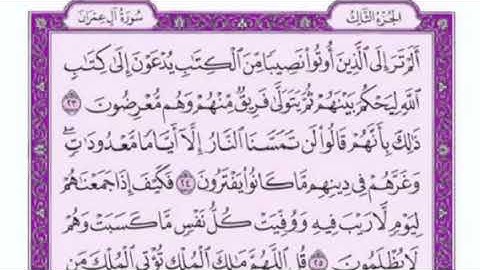 الجزء الثالث
سورة آل عمران
ألم تر إلى الذين أوتوا نصيبا من الكتب يدعون إلى كتب
الله ليحكم بينهم ثم يتولى فريق منهم وهم معرضون ٢٣
ذلك بأنهم قالوا لن تمسنا النار إلا أياما معدودات
وغرهم في دينهم ما كانوا يفترون ٢٤ فكيف إذا جمعنهم
ليوم لا ريب فيه ووفيت كل نفس ما كسبت وهم
لا يظلمون ٢٥ قل اللهم ملك الملك تؤتي الملك من